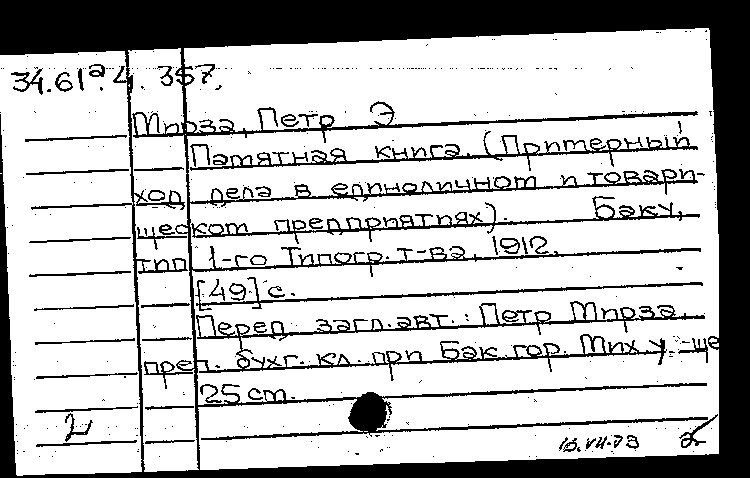 34.61а.4. 357.
Мирза, Петр Э
Памятная книга. (Примерный
ход дела в единоличном и товари-
ческом предприятиях). Баку,
тип 1-го Типогр. т-ва, 1912.
[49] с.
Перед загл. авт.: Петр Мирза,
преп. бухг. кл. при Бак. гор. Мих. у-ще
25 cm.
2
18.VII.73